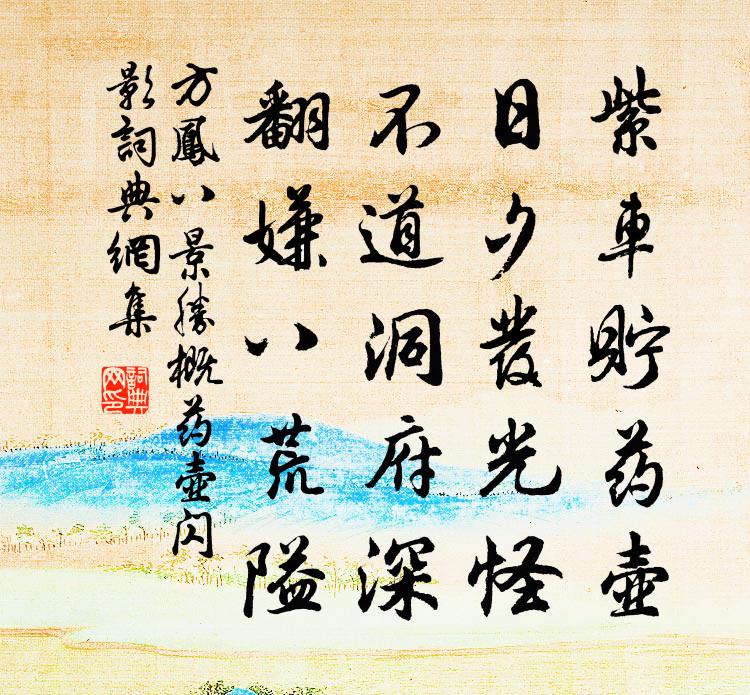 紫車貯药壺
日夕發光怪
不道洞府深
翻嫌八荒隘
方鳳八景勝概药壺閃
影詞典網集
詞典
网印